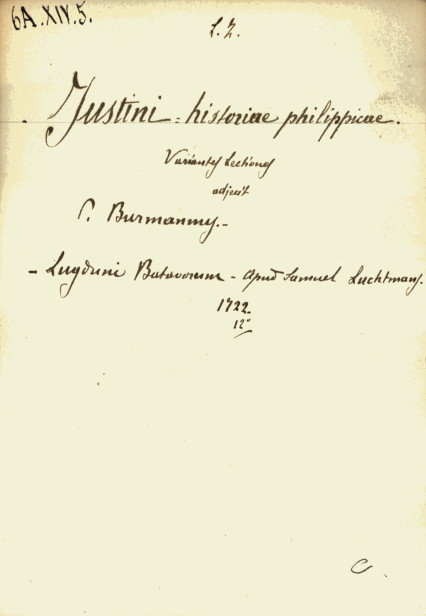 6A.XIV.5.
L.Z.
Justini = historiae philippicae.
Variantes Lectiones
adjecit
P. Burmannus.-
- Lugduni Batavorum - apud Samuel Luchtmans.
1722.
12°
C.